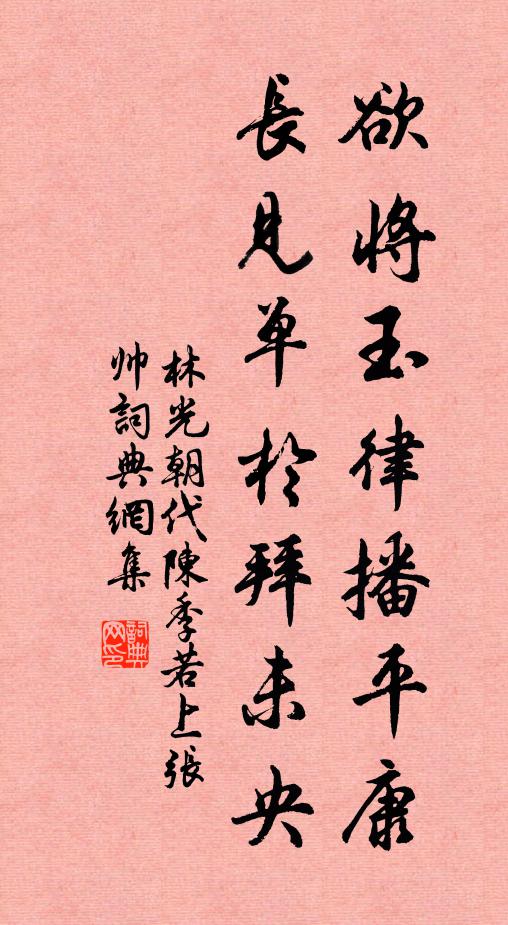 欲將玉律播平康
長見单於拜未央
林光朝代陳季若上張
帅詞典網集
詞典網印